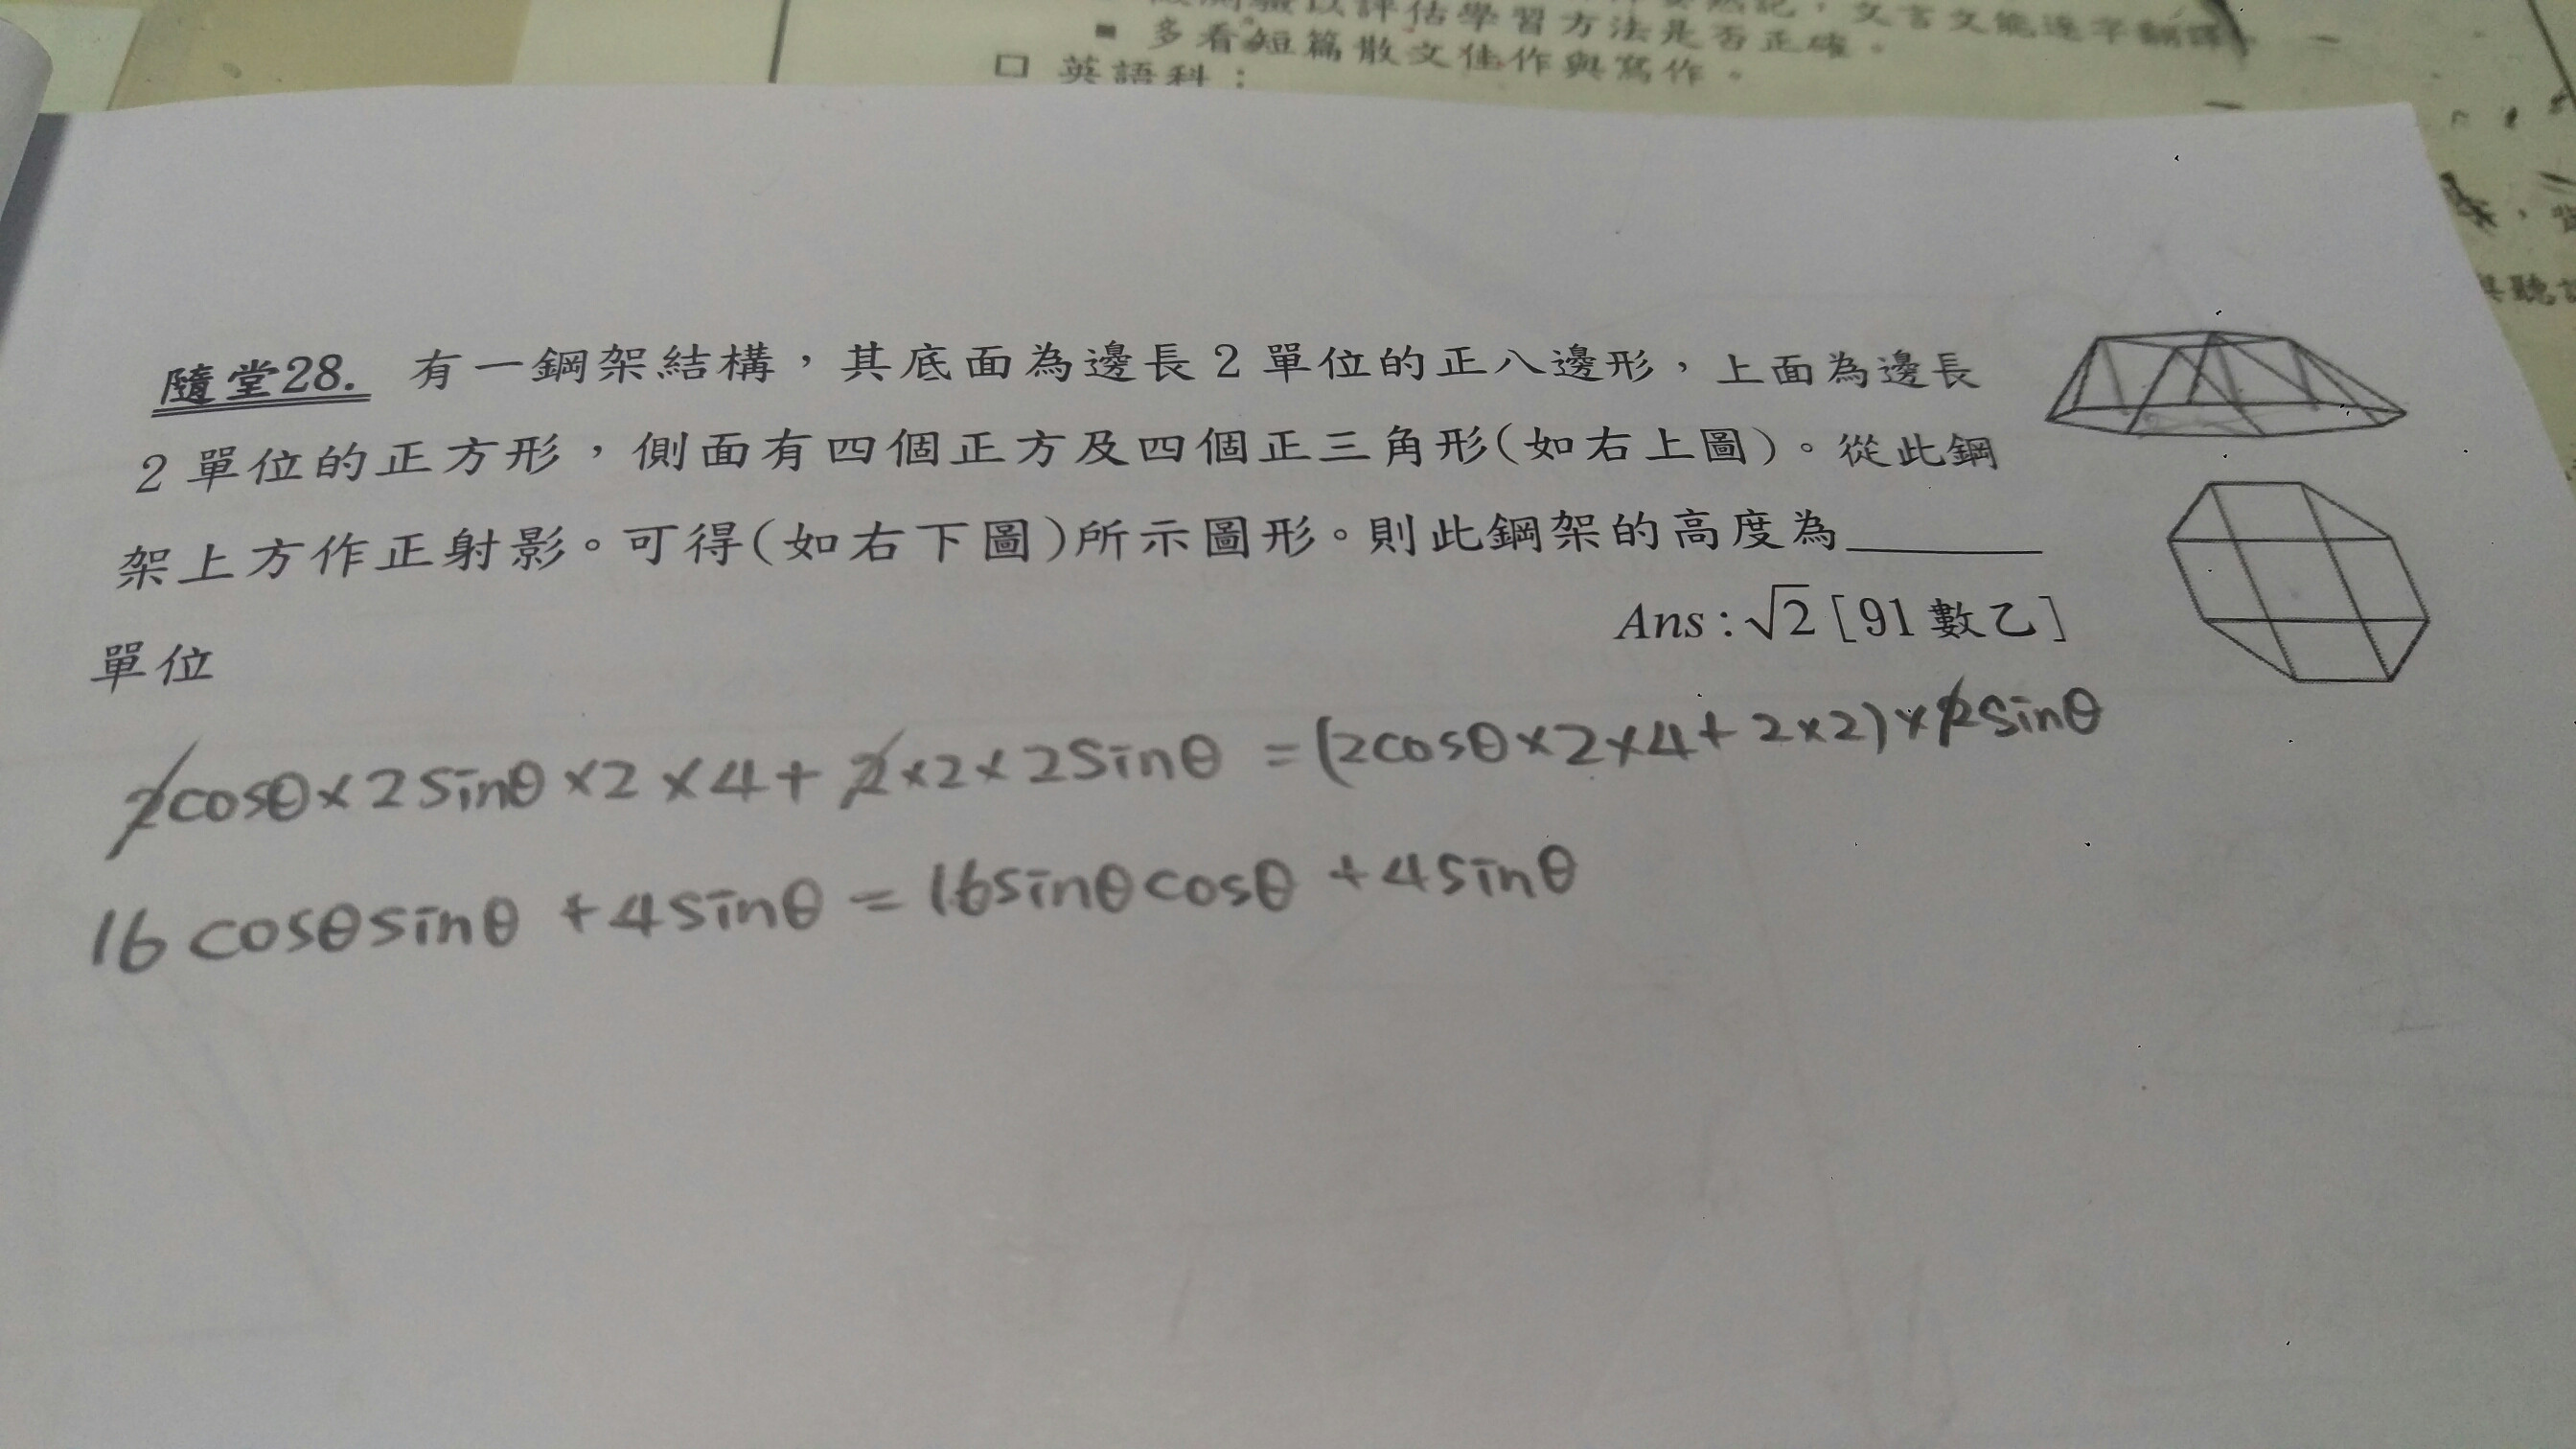 多看短篇散文佳作與寫作。
□ 英語科：
隨堂28. 有一鋼架結構，其底面為邊長2單位的正八邊形，上面為邊長
2單位的正方形，側面有四個正方及四個正三角形(如右上圖)。從此鋼
架上方作正射影。可得(如右下圖)所示圖形。則此鋼架的高度為______
單位
Ans:√2 [91數乙]
2cosθ×2sinθ×2×4+2×2×2sinθ=(2cosθ×2×4+2×2)×2sinθ
16cosθsinθ+4sinθ=16sinθcosθ+4sinθ